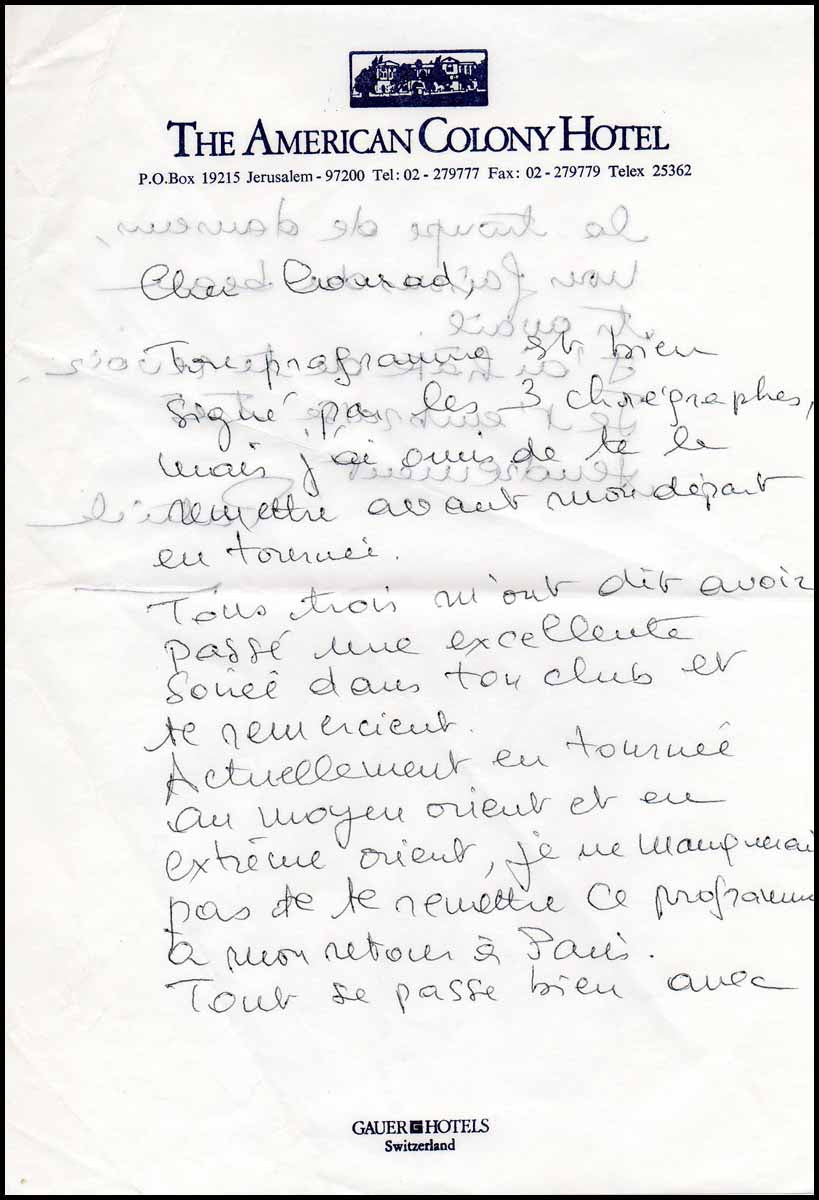 THE AMERICAN COLONY HOTEL
P.O.Box 19215 Jerusalem - 97200 Tel: 02 - 279777 Fax: 02 - 279779 Telex 25362
Cher Conrad,
Ton programme est bien
signé par les 3 chorégraphes,
mais j'ai omis de te le
remettre avant mon départ
en tournée.
Tous trois m'ont dit avoir
passé une excellente
soirée dans ton club et
te remercient.
Actuellement en tournée
au moyen orient et en
extrême orient, je ne manquerai
pas de te remettre ce programme
à mon retour à Paris.
Tout se passe bien avec
GAUER G HOTELS
Switzerland